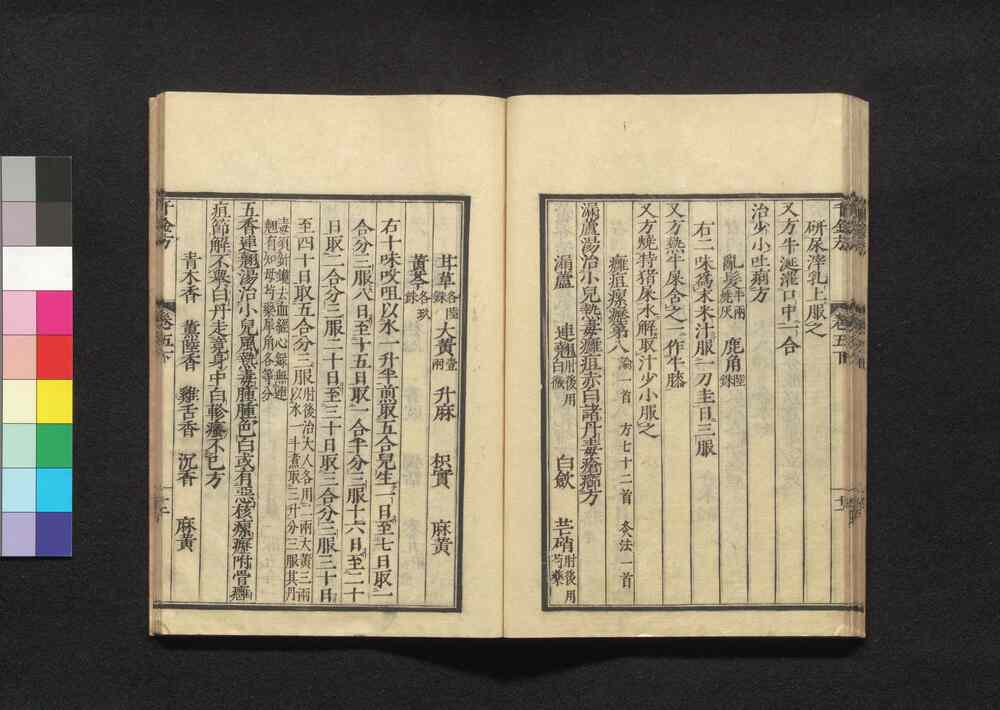 研尿滓乳上服之
又方牛涎灌口中一合
治少小吐痢方
亂髮半兩燒灰 鹿角陸銖
右二味爲末米汁服一刀圭日三服
又方熱牛屎含之一作牛膝
又方燒特猪屎水解取汁少小服之
癰疽瘰癧第八論一首 方七十二首 灸法一首
漏蘆湯治小兒熱毒癰疽赤白諸丹毒瘡癤方
漏蘆 連翹肘後用白薇 白斂 芒硝肘後用芍藥
千金方 卷五下
甘草各陸銖 大黃壹兩 升麻 枳實 麻黃
黃芩各玖銖
右十味㕮咀以水一升半煎取五合兒生一日至七日取一
合分三服八日至十五日取一合半分三服十六日至二十
日取二合分三服二十日至三十日取三合分三服三十日
至四十日取五合分三服肘後治大人各用二兩大黃三兩以水一斗煮取三升分三服其丹
毒須針鑱去血經心錄無連翹有知母芍藥犀角各等分
五香連翹湯治小兒風熱毒腫腫色白或有惡核瘰癧附骨癰
疽節解不舉白丹走竟身中白㾦瘙不已方
青木香 薰陸香 雞舌香 沉香 麻黃
千金方 卷五下